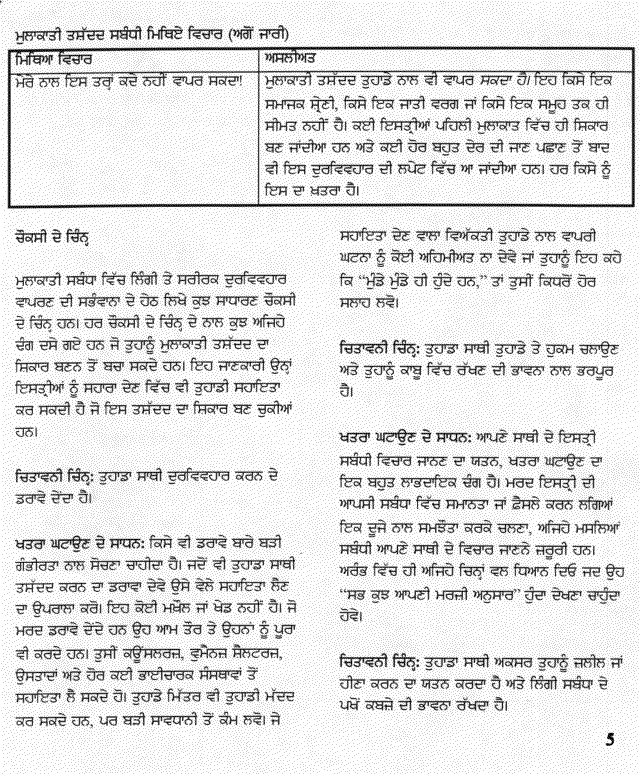 ਮੁਲਾਕਾਤੀ ਤਸ਼ੱਦਦ ਸਬੰਧੀ ਮਿਥਿਏ ਵਿਚਾਰ (ਅਗੋਂ ਜਾਰੀ)
ਮਿਥਿਆ ਵਿਚਾਰ
ਮੇਰੇ ਨਾਲ ਇਸ ਤਰ੍ਹਾਂ ਕਦੇ ਨਹੀਂ ਵਾਪਰ ਸਕਦਾ!
ਅਸਲੀਅਤ
ਮੁਲਾਕਾਤੀ ਤਸ਼ੱਦਦ ਤੁਹਾਡੇ ਨਾਲ ਵੀ ਵਾਪਰ ਸਕਦਾ ਹੈ। ਇਹ ਕਿਸੇ ਇਕ
ਸਮਾਜਕ ਸ਼੍ਰੇਣੀ, ਕਿਸੇ ਇਕ ਜਾਤੀ ਵਰਗ ਜਾਂ ਕਿਸੇ ਇਕ ਸਮੂਹ ਤਕ ਹੀ
ਸੀਮਤ ਨਹੀਂ ਹੈ। ਕਈ ਇਸਤ੍ਰੀਆਂ ਪਹਿਲੀ ਮੁਲਾਕਾਤ ਵਿੱਚ ਹੀ ਸ਼ਿਕਾਰ
ਬਣ ਜਾਂਦੀਆ ਹਨ ਅਤੇ ਕਈ ਹੋਰ ਬਹੁਤ ਦੇਰ ਦੀ ਜਾਣ ਪਛਾਣ ਤੋਂ ਬਾਦ
ਵੀ ਇਸ ਦੁਰਵਿਵਹਾਰ ਦੀ ਲਪੇਟ ਵਿੱਚ ਆ ਜਾਂਦੀਆ ਹਨ। ਹਰ ਕਿਸੇ ਨੂੰ
ਇਸ ਦਾ ਖ਼ਤਰਾ ਹੈ।
ਚੌਕਸੀ ਦੇ ਚਿੰਨ੍ਹ
ਮੁਲਾਕਾਤੀ ਸਬੰਧਾ ਵਿੱਚ ਲਿੰਗੀ ਤੇ ਸਰੀਰਕ ਦੁਰਵਿਵਹਾਰ
ਵਾਪਰਣ ਦੀ ਸਭੰਵਾਨਾ ਦੇ ਹੇਠ ਲਿਖੇ ਕੁਝ ਸਾਧਾਰਣ ਚੌਕਸੀ
ਦੇ ਚਿੰਨ੍ਹ ਹਨ। ਹਰ ਚੌਕਸੀ ਦੇ ਚਿੰਨ੍ਹ ਦੇ ਨਾਲ ਕੁਝ ਅਜਿਹੇ
ਢੰਗ ਦਸੇ ਗਏ ਹਨ ਜੋ ਤੁਹਾਨੂੰ ਮੁਲਾਕਾਤੀ ਤਸ਼ੱਦਦ ਦਾ
ਸ਼ਿਕਾਰ ਬਣਨ ਤੋਂ ਬਚਾ ਸਕਦੇ ਹਨ। ਇਹ ਜਾਣਕਾਰੀ ਉਨ੍ਹਾਂ
ਇਸਤ੍ਰੀਆਂ ਨੂੰ ਸਹਾਰਾ ਦੇਣ ਵਿੱਚ ਵੀ ਤੁਹਾਡੀ ਸਹਾਇਤਾ
ਕਰ ਸਕਦੀ ਹੈ ਜੋ ਇਸ ਤਸ਼ੱਦਦ ਦਾ ਸ਼ਿਕਾਰ ਬਣ ਚੁਕੀਆਂ
ਹਨ।
ਚਿਤਾਵਨੀ ਚਿੰਨ੍ਹ: ਤੁਹਾਡਾ ਸਾਥੀ ਦੁਰਵਿਵਹਾਰ ਕਰਨ ਦੇ
ਡਰਾਵੇ ਦੇਂਦਾ ਹੈ।
ਖਤਰਾ ਘਟਾਉਣ ਦੇ ਸਾਧਨ: ਕਿਸੇ ਵੀ ਡਰਾਵੇ ਬਾਰੇ ਬੜੀ
ਗੰਭੀਰਤਾ ਨਾਲ ਸੋਚਣਾ ਚਾਹੀਦਾ ਹੈ। ਜਦੋਂ ਵੀ ਤੁਹਾਡਾ ਸਾਥੀ
ਤਸ਼ੱਦਦ ਕਰਨ ਦਾ ਡਰਾਵਾ ਦੇਵੇ ਉਸੇ ਵੇਲੇ ਸਹਾਇਤਾ ਲੈਣ
ਦਾ ਉਪਰਾਲਾ ਕਰੋ। ਇਹ ਕੋਈ ਮਖ਼ੌਲ ਜਾਂ ਖੇਡ ਨਹੀਂ ਹੈ। ਜੋ
ਮਰਦ ਡਰਾਵੇ ਦੇਂਦੇ ਹਨ ਉਹ ਆਮ ਤੌਰ ਤੇ ਉਹਨਾਂ ਨੂੰ ਪੂਰਾ
ਵੀ ਕਰਦੇ ਹਨ। ਤੁਸੀਂ ਕਉੂਂਸਲਰਜ਼, ਵੁਮੈਨਜ਼ ਸ਼ੈਲਟਰਜ਼,
ਉਸਤਾਦਾਂ ਅਤੇ ਹੋਰ ਕਈ ਭਾਈਚਾਰਕ ਸੰਸਥਾਵਾਂ ਤੋਂ
ਸਹਾਇਤਾ ਲੈ ਸਕਦੇ ਹੋ। ਤੁਹਾਡੇ ਮਿੱਤਰ ਵੀ ਤੁਹਾਡੀ ਮੱਦਦ
ਕਰ ਸਕਦੇ ਹਨ, ਪਰ ਬੜੀ ਸਾਵਧਾਨੀ ਤੋਂ ਕੰਮ ਲਵੋ। ਜੇ
ਸਹਾਇਤਾ ਦੇਣ ਵਾਲਾ ਵਿਅੱਕਤੀ ਤੁਹਾਡੇ ਨਾਲ ਵਾਪਰੀ
ਘਟਨਾ ਨੂੰ ਕੋਈ ਅਹਿਮੀਅਤ ਨਾ ਦੇਵੇ ਜਾਂ ਤੁਹਾਨੂੰ ਇਹ ਕਹੇ
ਕਿ “ਮੁੰਡੇ ਮੁੰਡੇ ਹੀ ਹੁੰਦੇ ਹਨ,” ਤਾਂ ਤੁਸੀਂ ਕਿਧਰੋਂ ਹੋਰ
ਸਲਾਹ ਲਵੋ।
ਚਿਤਾਵਨੀ ਚਿੰਨ੍ਹ: ਤੁਹਾਡਾ ਸਾਥੀ ਤੁਹਾਡੇ ਤੇ ਹੁਕਮ ਚਲਾਉਣ
ਅਤੇ ਤੁਹਾਨੂੰ ਕਾਬੂ ਵਿੱਚ ਰੱਖਣ ਦੀ ਭਾਵਨਾ ਨਾਲ ਭਰਪੂਰ
ਹੈ।
ਖਤਰਾ ਘਟਾਉਣ ਦੇ ਸਾਧਨ: ਆਪਣੇ ਸਾਥੀ ਦੇ ਇਸਤ੍ਰੀ
ਸਬੰਧੀ ਵਿਚਾਰ ਜਾਨਣ ਦਾ ਯਤਨ, ਖਤਰਾ ਘਟਾਉਣ ਦਾ
ਇਕ ਬਹੁਤ ਲਾਭਦਾਇਕ ਢੰਗ ਹੈ। ਮਰਦ ਇਸਤ੍ਰੀ ਦੀ
ਆਪਸੀ ਸਬੰਧਾ ਵਿੱਚ ਸਮਾਨਤਾ ਜਾਂ ਫ਼ੈਸਲੇ ਕਰਨ ਲਗਿਆਂ
ਇਕ ਦੂਜੇ ਨਾਲ ਸਮਝੌਤਾ ਕਰਕੇ ਚਲਣਾ, ਅਜਿਹੇ ਮਸਲਿਆਂ
ਸਬੰਧੀ ਆਪਣੇ ਸਾਥੀ ਦੇ ਵਿਚਾਰ ਜਾਨਣੇ ਜ਼ਰੂਰੀ ਹਨ।
ਅਰੰਭ ਵਿੱਚ ਹੀ ਅਜਿਹੇ ਚਿਨ੍ਹਾਂ ਵਲ ਧਿਆਨ ਦਿਓ ਜਦ ਉਹ
“ਸਭ ਕੁਝ ਆਪਣੀ ਮਰਜ਼ੀ ਅਨੁਸਾਰ” ਹੁੰਦਾ ਦੇਖਣਾ ਚਾਹੁੰਦਾ
ਹੋਵੇ।
ਚਿਤਾਵਨੀ ਚਿੰਨ੍ਹ: ਤੁਹਾਡਾ ਸਾਥੀ ਅਕਸਰ ਤੁਹਾਨੂੰ ਜ਼ਲੀਲ ਜਾਂ
ਹੀਣਾ ਕਰਨ ਦਾ ਯਤਨ ਕਰਦਾ ਹੈ ਅਤੇ ਲਿੰਗੀ ਸਬੰਧਾ ਦੇ
ਪਖੋਂ ਕਬਜ਼ੇ ਦੀ ਭਾਵਨਾ ਰੱਖਦਾ ਹੈ।
5